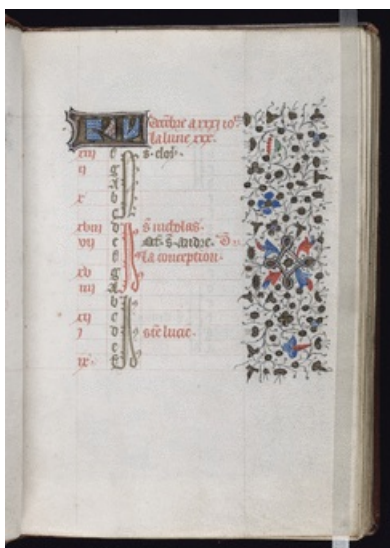 KL Decembre a xxxi io
la lune xxx.
xiii f s. eloy.
ii g
A
x b
c
xviii d s nicholas.
vii e Oct. s. andre.
f la conception.
xv g
iiii A
b
xii c
i d ste lucie.
e
ix f